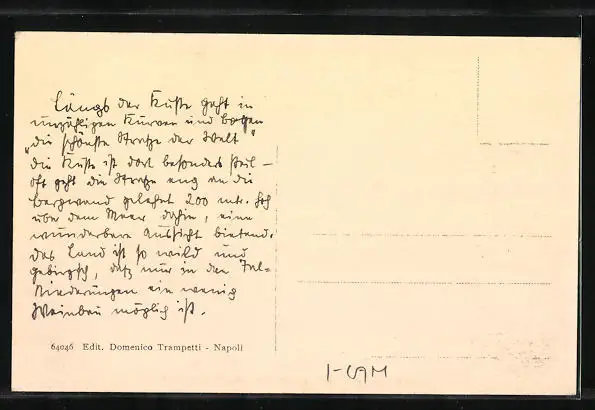 Längs der Küste geht in
unzähligen Kurven und Bogen
„die schönste Straße der Welt"
die Küste ist dort besonders steil –
oft geht die Straße eng an die
Bergwand gelehnt 200 mt. hoch
über dem Meer dahin, eine
wunderbare Aussicht bietend.
Das Land ist so wild und
gebirgisch, daß nur in den Tal-
Niederungen ein wenig
Weinbau möglich ist.
64046 Edit. Domenico Trampetti - Napoli